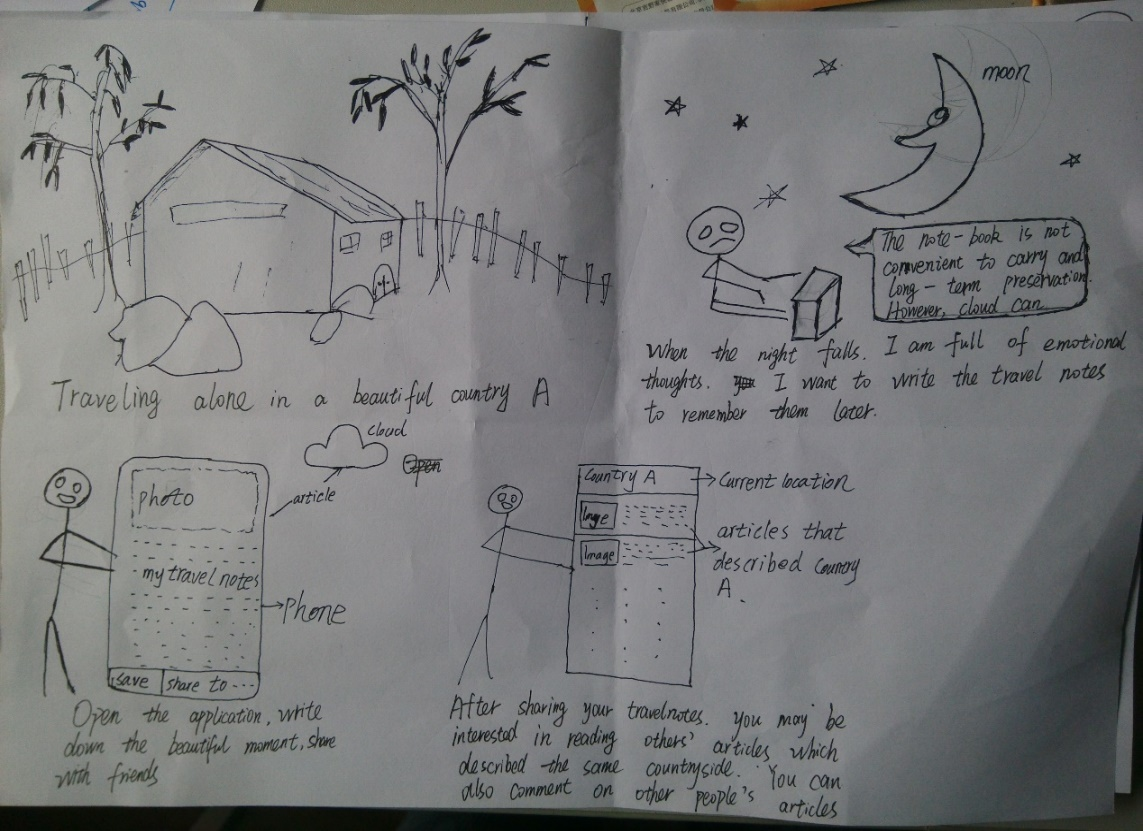 Traveling alone in a beautiful country A
moon
The note-book is not
convenient to carry and
long-term preservation.
However, cloud can
When the night falls. I am full of emotional
thoughts. I want to write the travel notes
to remember them later.
cloud
Open
article
photo
my travel notes
Phone
save share to ---
Open the application, write
down the beautiful moment, share
with friends
Country A
Current location
Image
Image
articles that
described country
A.
After sharing your travelnotes. you may be
interested in reading others' articles which
described the same countryside. You can
also comment on other people's articles